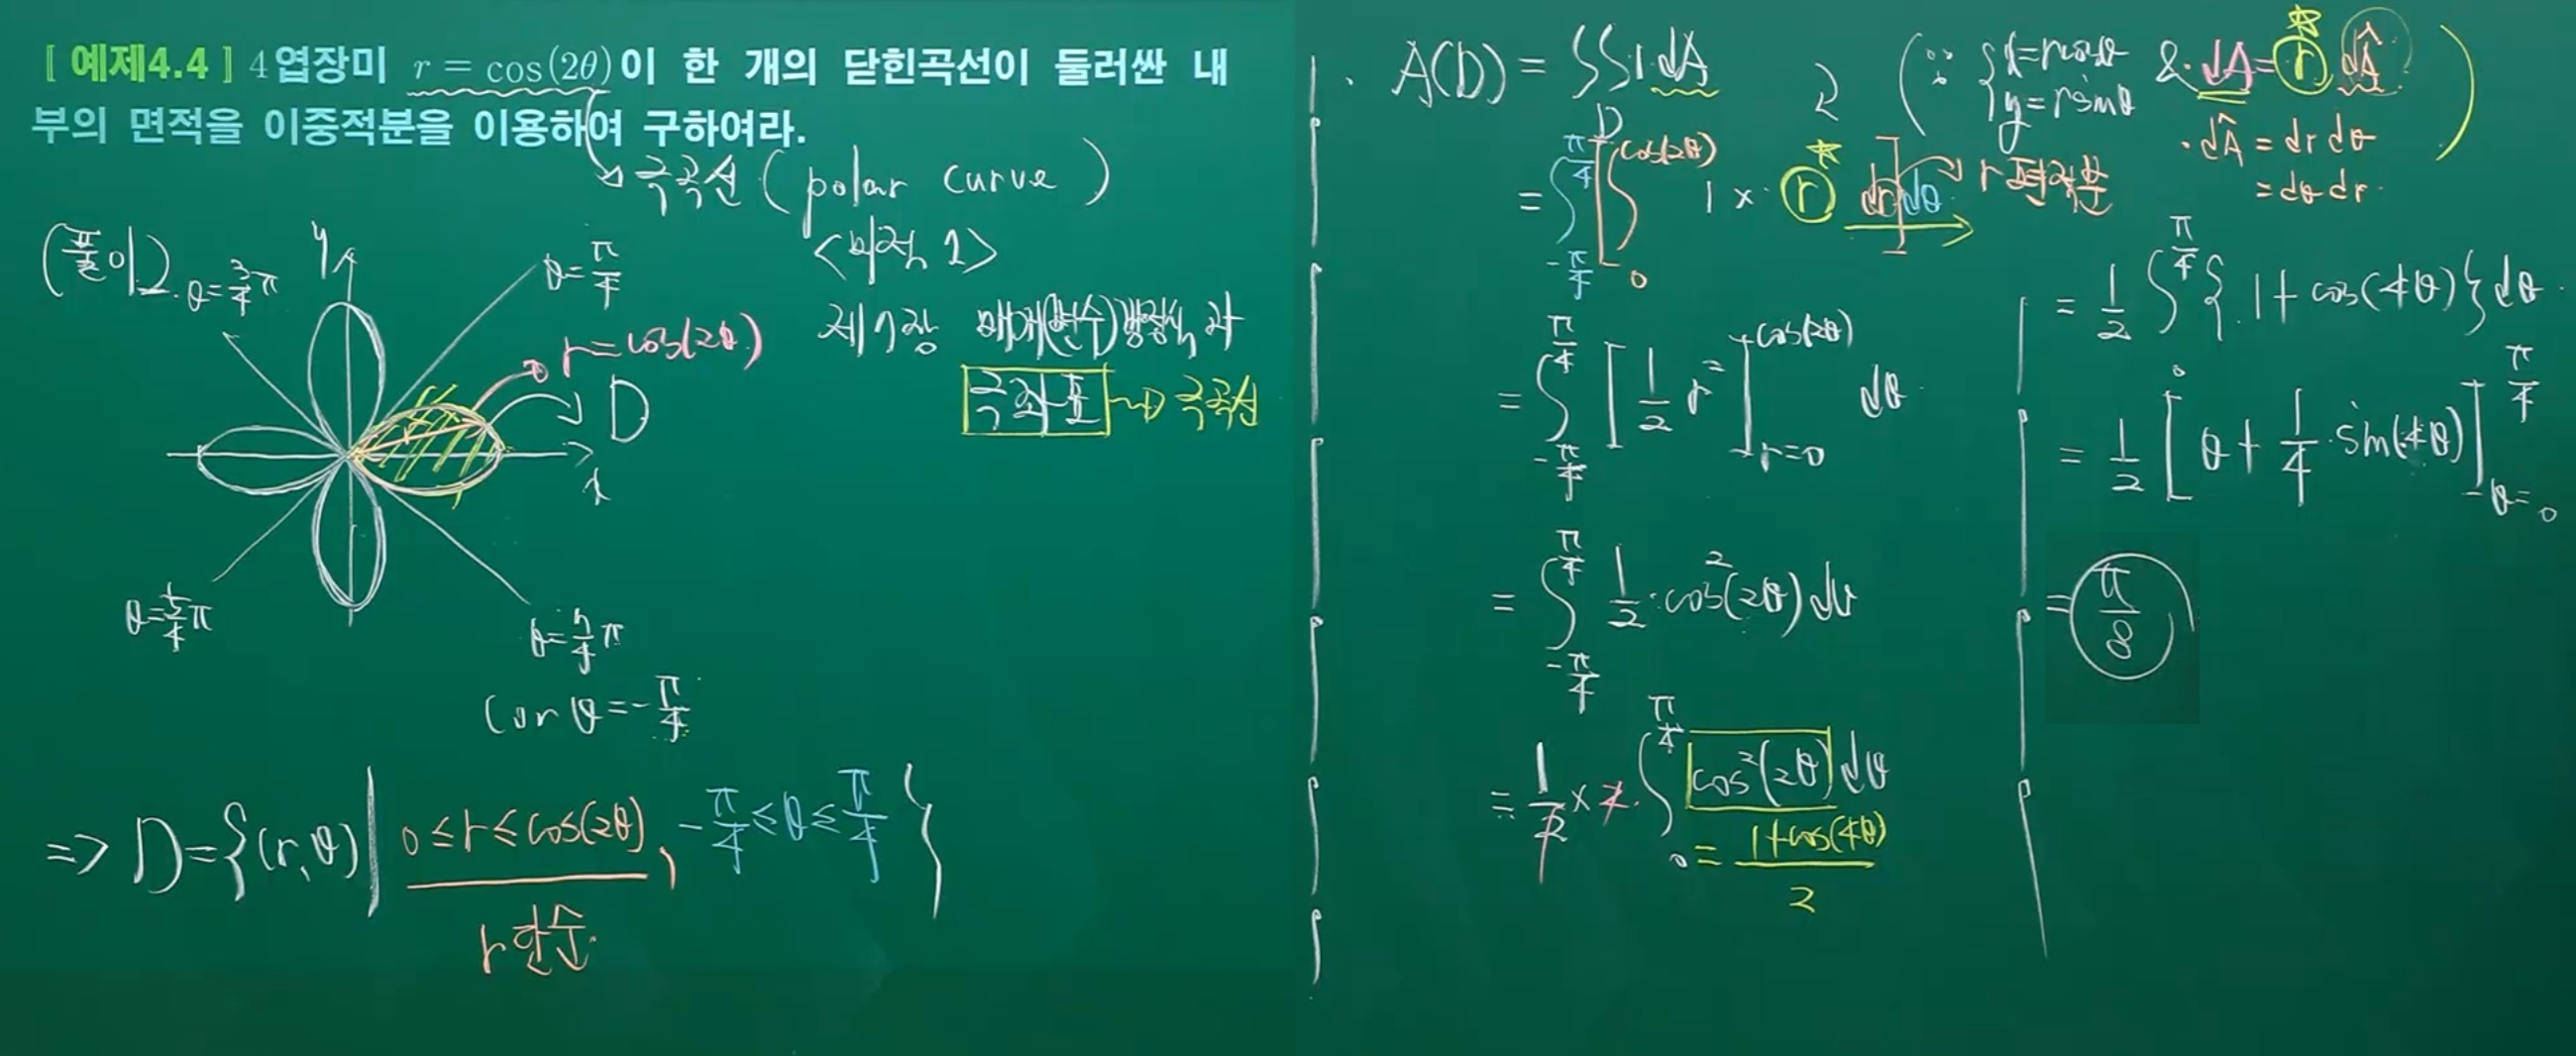 [ 예제4.4 ] 4엽장미 r = cos(2θ)이 한 개의 닫힌곡선이 둘러싼 내
부의 면적을 이중적분을 이용하여 구하여라.
극곡선 ( polar curve )
<미적 1>
제7장 매개(변수)방정식과
극좌표 → 극곡선
(풀이)
θ=3/4π
y
θ=π/4
r=cos(2θ)
D
x
θ=5/4π
θ=7/4π
(or θ=-π/4
=> D={(r,θ)| 0≤r≤cos(2θ), -π/4≤θ≤π/4}
r단순
A(D) = ∬_D 1·dA
(∵ {x=rcosθ y=rsinθ & dA=r dÂ)
· dÂ = dr dθ
= dθ dr
= ∫_{-π/4}^{π/4} [∫_0^{cos(2θ)} 1 × r dr] dθ r편적분
= ∫_{-π/4}^{π/4} [1/2 r²]_{r=0}^{cos(2θ)} dθ
= ∫_{-π/4}^{π/4} 1/2·cos²(2θ) dθ
= 1/2 × 2·∫_0^{π/4} cos²(2θ) dθ
= (1+cos(4θ))/2
= 1/2 ∫_0^{π/4} {1+cos(4θ)} dθ
= 1/2 [θ + 1/4·sin(4θ)]_{θ=0}^{π/4}
= π/8